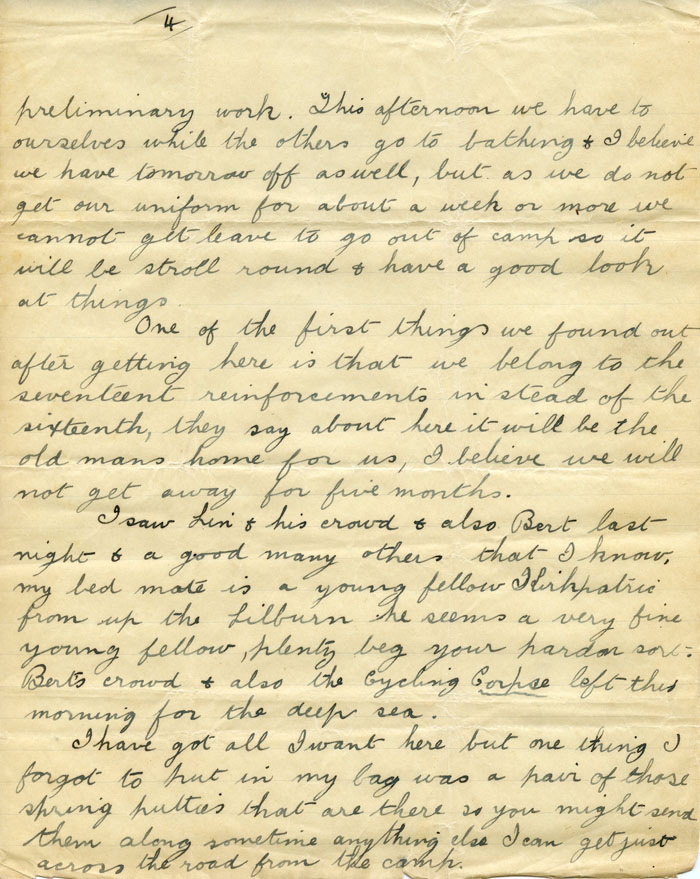 4
preliminary work. This afternoon we have to
ourselves while the others go to bathing & I believe
we have tomorrow off as well, but as we do not
get our uniform for about a week or more we
cannot get leave to go out of camp so it
will be stroll round & have a good look
at things.
One of the first things we found out
after getting here is that we belong to the
seventeent reinforcements in stead of the
sixteenth, they say about here it will be the
old mans home for us, I believe we will
not get away for five months.
I saw Lin & his crowd & also Bert last
night & a good many others that I know,
my bed mate is a young fellow Kirkpatric
from up the Lilburn he seems a very fine
young fellow, plenty beg your pardon sort.
Berts crowd & also the Cycling Corpse left this
morning for the deep sea.
I have got all I want here but one thing I
forgot to put in my bag was a pair of those
spring putties that are there so you might send
them along sometime anything else I can get just
across the road from the camp.